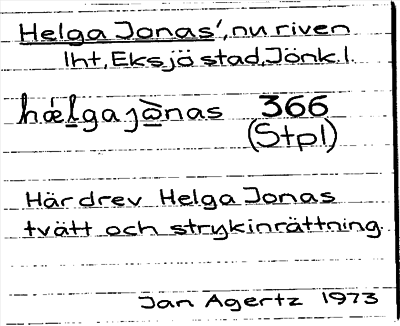 Helga Jonas', nu riven
lht, Eksjö stad, Jönk. l.
hǽl̲gajò̲nas 366
(Stpl)
Här drev Helga Jonas
tvätt och strykinrättning.
Jan Agertz 1973